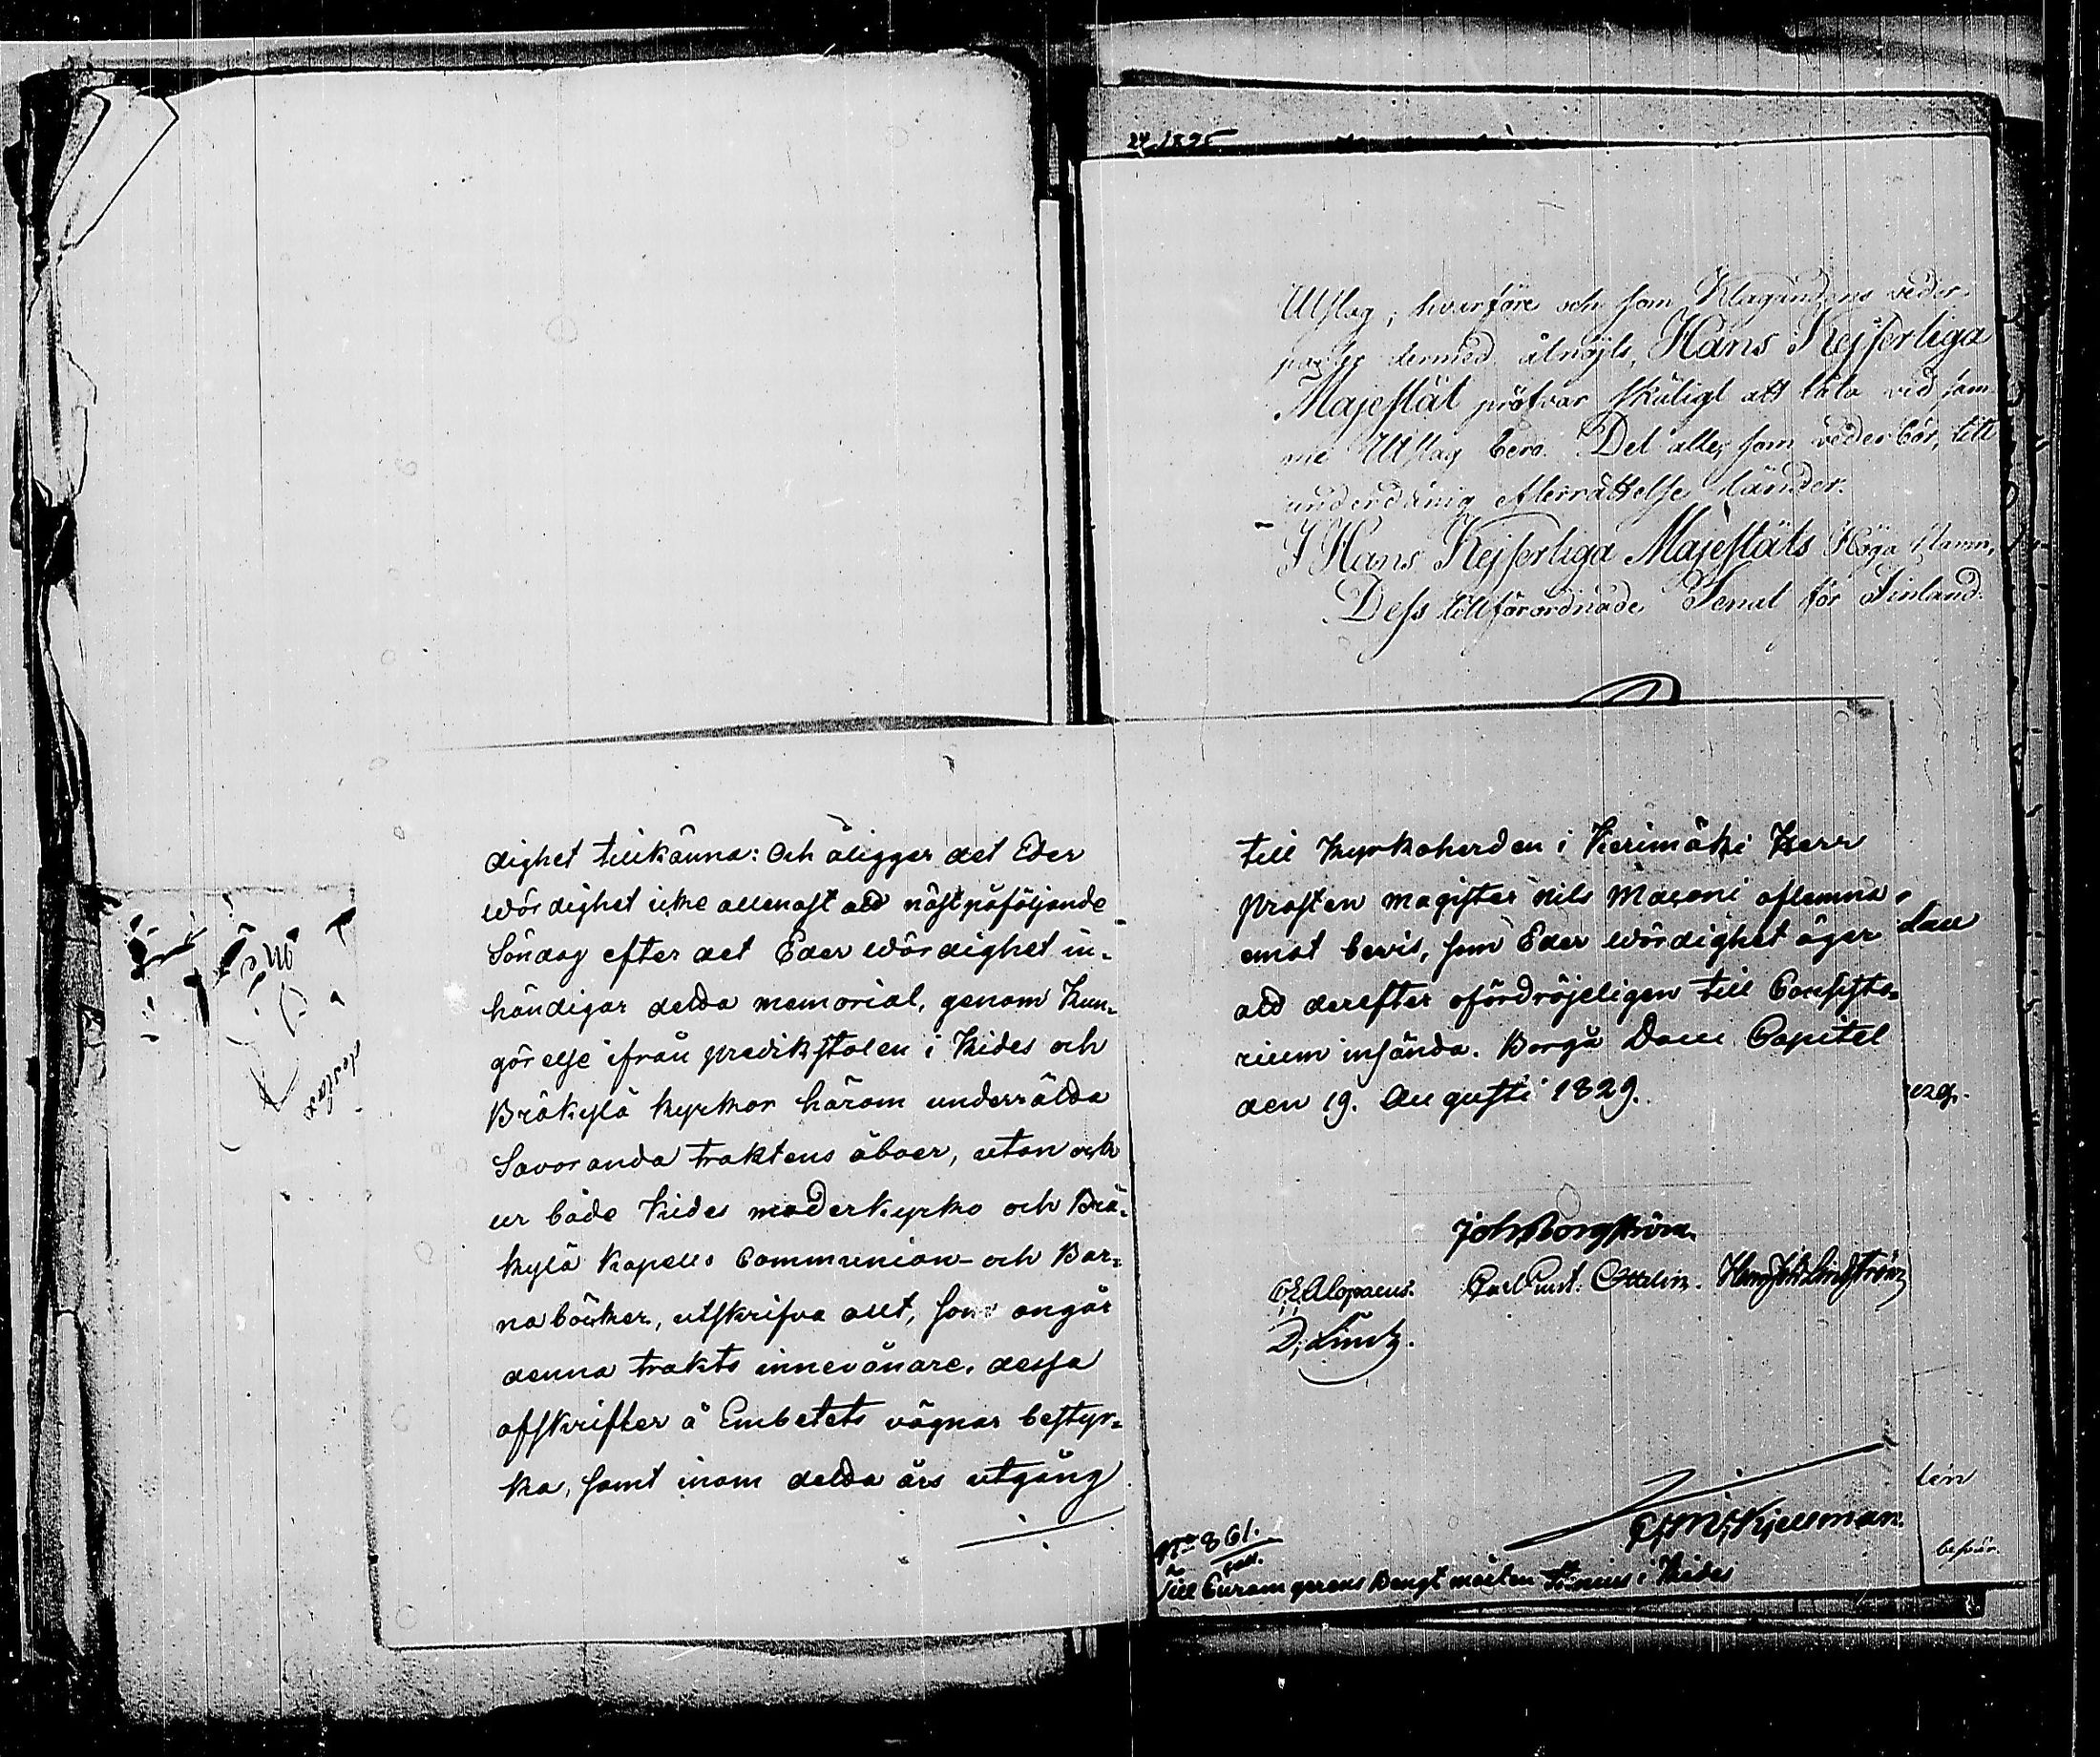 24/1895
Utslag; hvarföre och som Klagandens veder-
parter dermed åtnöjts, Hans Kejserliga
Majestät pröfvar skäligt att låta vid sam-
me Utslag bero. Det alle, som vederbör, till
underdånig efterrättelse länder.
I Hans Kejserliga Majestäts Höga Namn,
Dess tillförordnade Senat för Finland.
dighet tillkänna: Och åligger det Eder
Wördighet icke allenast att nästpåföljande
Söndag efter det Eder Wördighet in-
händigar detta memorial, genom Kun-
görelse ifrån predikstolen i Kides och
Bräkylä kyrkor härom underrätta
Savoranda traktens åboer, utan och
ur både Kides moderkyrko och Brä-
kylä Kapells Communion- och Bar-
naböcker, utskrifva allt, som angår
denna trakts innevånare, dessa
afskrifter å Embetets vägnar bestyr-
ka, samt inom detta års utgång
till Kyrkoherden i Kerimäki Herr
Prosten magister Nils Maconi aflemna
emot bevis, som Eder Wördighet äger
att derefter ofördröjeligen till Consisto-
rium insända. Borgå Dom Capitel
den 19. Augusti 1829.
Joh. Borgström.
Alopaeus. Carl Gust. Ottelin. Lindström
Kjellman.
No 861.
Till Curam gerens Bengt Mårten i Kides